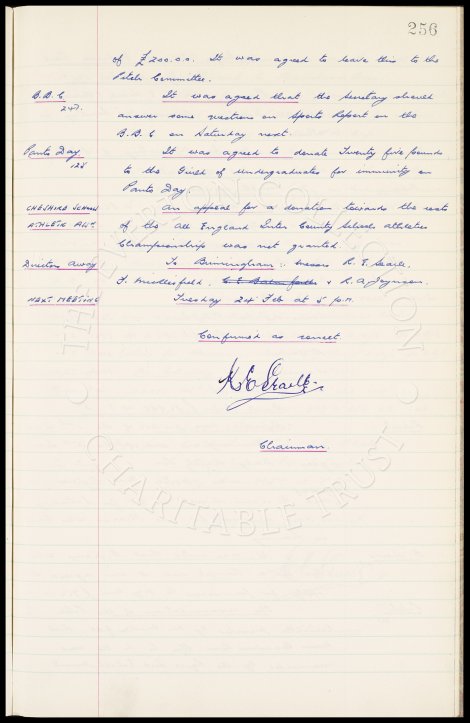 256
of £200.0.0. It was agreed to leave this to the
Pitch Committee.
B.B.C It was agreed that the Secretary should
247. answer some questions on Sports Report on the
B.B.C on Saturday next.
Panto Day It was agreed to donate Twenty five pounds
128 to the Guild of Undergraduates for immunity on
Panto Day.
CHESHIRE SCHOOLS An appeal for a donation towards the costs
ATHLETIC of the All England Inter County Schools athletics
Championships was not granted.
Directors Away To Birmingham:- Messrs R. E. Searle,
F. Micklesfield, & R. A. Joynson.
NEXT MEETING Tuesday 24 Feb at 5 p.m.
Confirmed as correct.
Chairman.
THE EVERTON COLLECTION
CHARITABLE TRUST